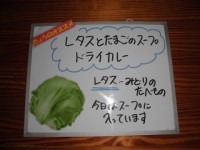 きょうのオススメ
レタスとたまごのスープ
ドライカレー
レタス-みどりの
たべもの
今日はスープに
入っています